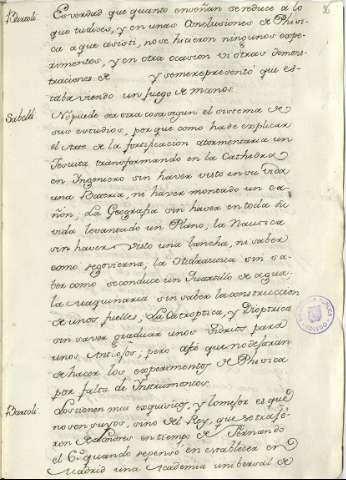 Bartoli. Es verdad que quanto enseñan se reduce a lo
que tu dices, y en unas Conclusiones de Phisi-
ca a que asistí, no se hicieron ningunos expe-
rimentos, y en otra ocasion vi otras demons-
traciones de y se me representó que es-
taba viendo un fuego de manos.
Sabelli. No puede ser otra cosa segun el sistema de
sus estudios, porque como ha de explicar
el Arte de la fortificacion atormentaria un
Jesuita transformando en la Cathedra
en Ingeniero sin haver visto en su vida
una Bateria, ni haver montado un ca-
ñón, La Geografia sin haver en toda su
vida levantado un Plano, la Nautica
sin haver visto una lancha, ni saber
como se govierna, la Hidraulica sin sa-
ber como se conduce un quartillo de agua,
la Maquinaria sin saber la construccion
de unos fuelles, La Catroptica, y Dioptrica
sin saver graduar unos Vidrios para
unos Anteojos; pero afé que no dejaran
de hacer los experimentos de Phisica
por falta de Instrumentos.
Bartoli. Los tienen mui exquisitos, y lo mejor es que
no son suyos, sino del Rey, que se traxe-
ron de Londres en tiempo de Fernando
el 6º quando se pensó en establecer en
Madrid una Academia universal de